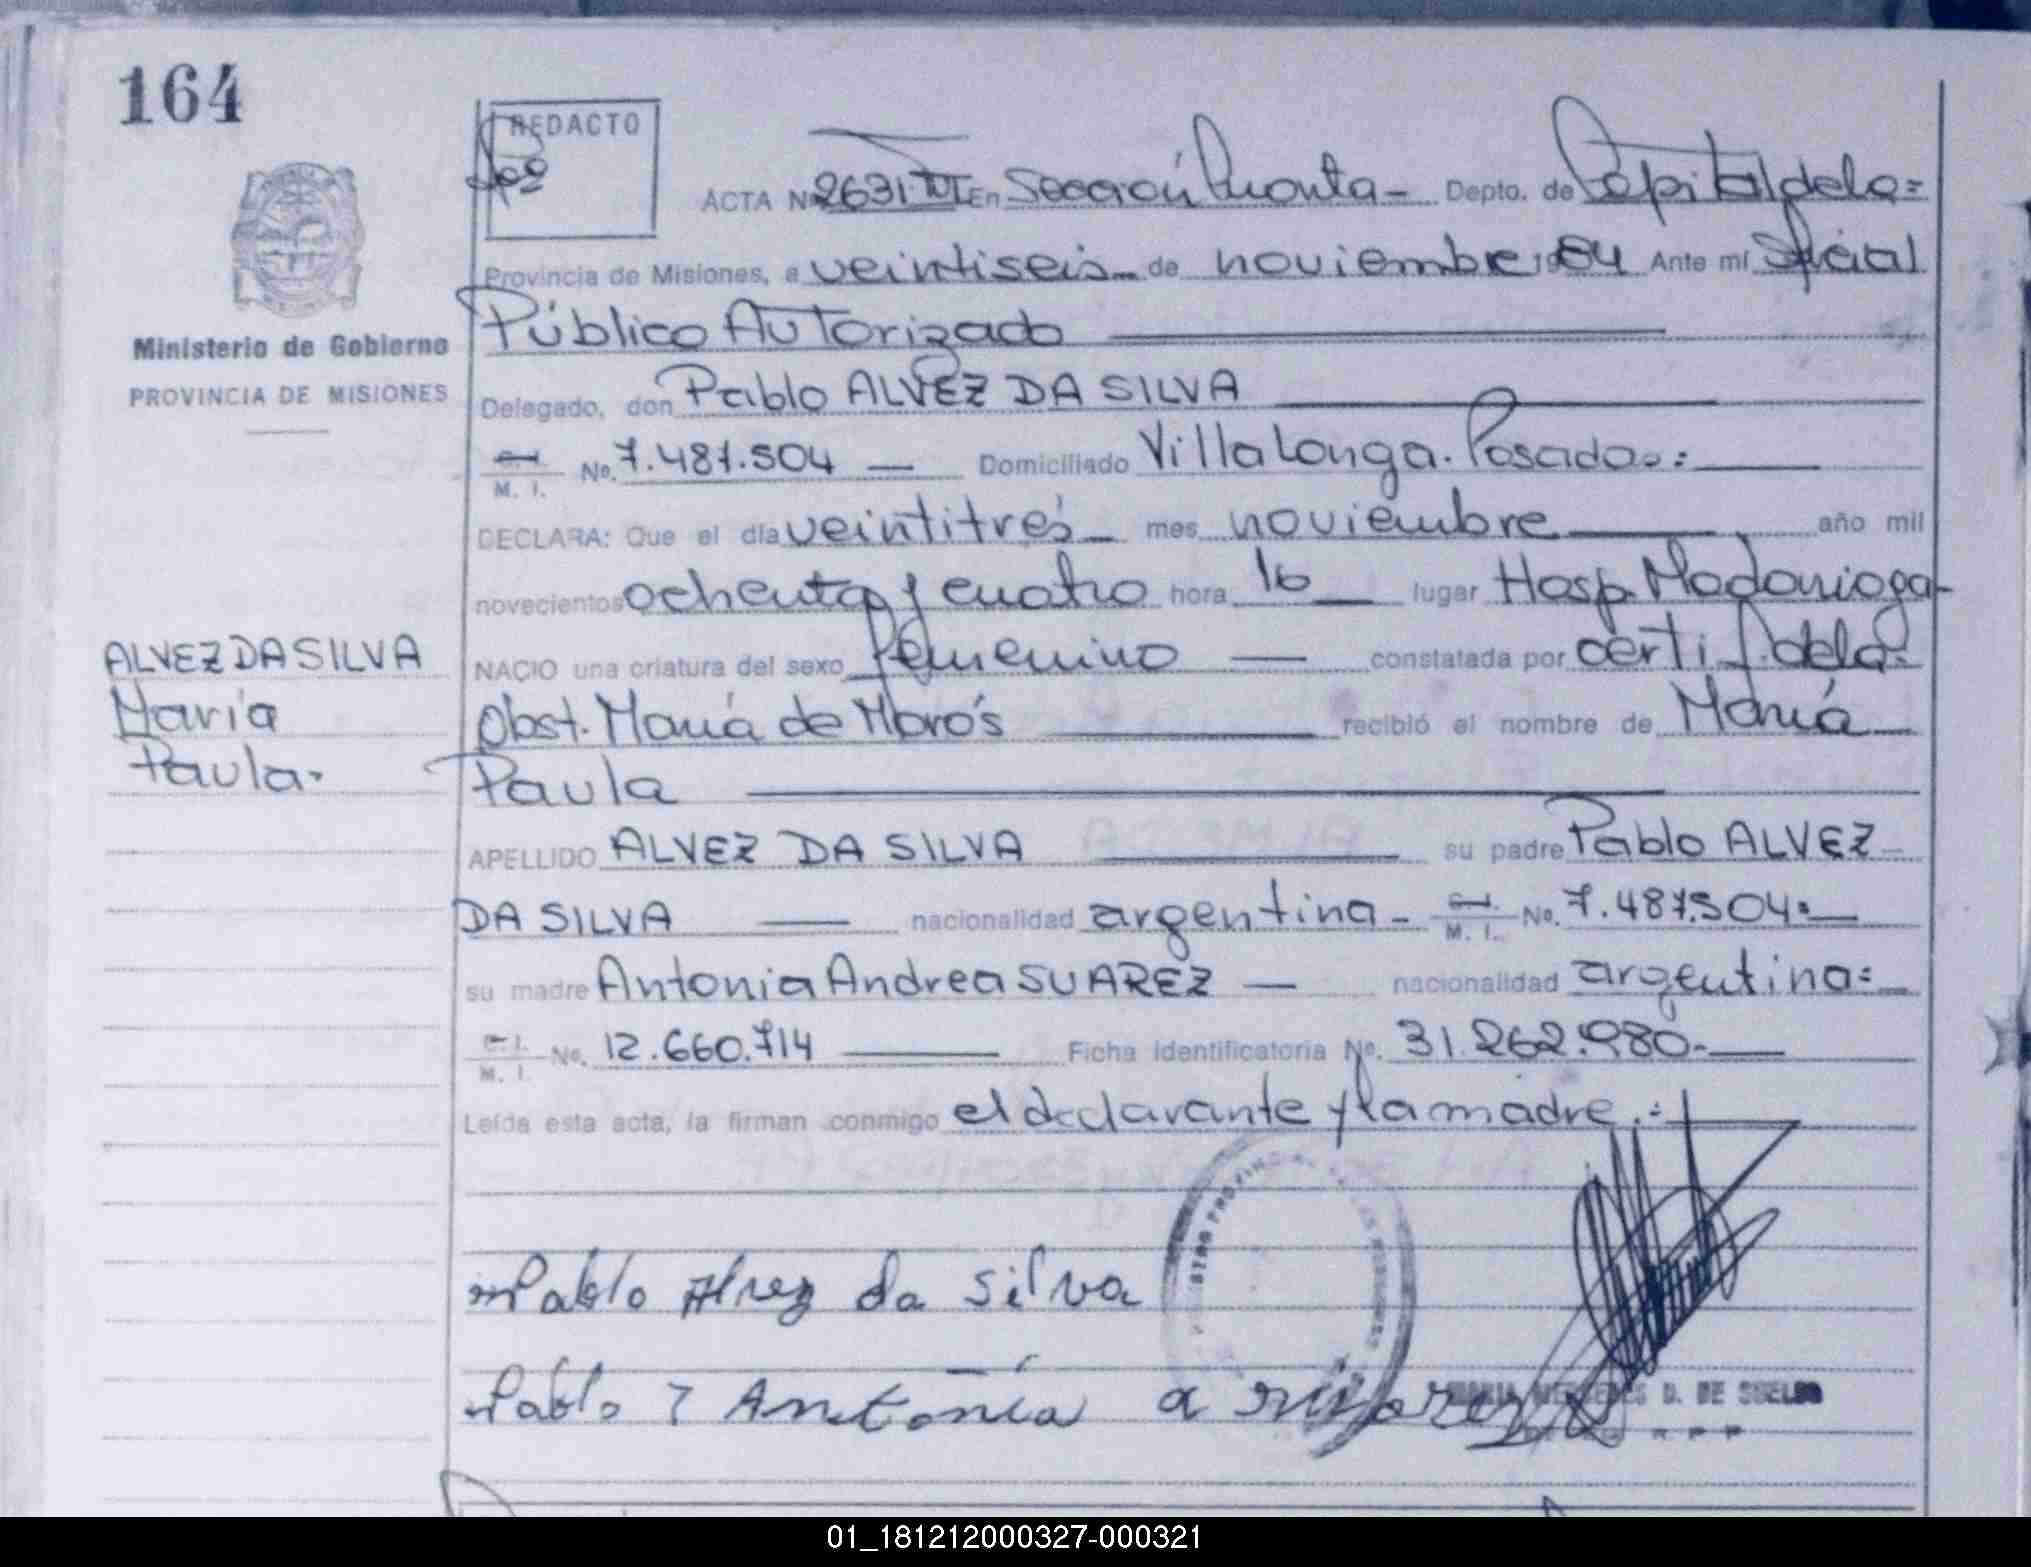 164
REDACTO
ACTA Nº 2631. TVI En Sección Cuarta - Depto. de Capital de la =
Provincia de Misiones, a veintiseis de noviembre 1984 Ante mí Oficial
Público Autorizado
Ministerio de Gobierno
PROVINCIA DE MISIONES
Delegado, don Pablo ALVEZ DA SILVA
C. I. M. I. No. 7.487.504 — Domiciliado Villa Longa. Posadas.:
DECLARA: Que el día veintitrés mes noviembre año mil
novecientos ochenta y cuatro hora 16 lugar Hosp. Madariaga-
NACIO una criatura del sexo femenino — constatada por certif. de la
Obst. María de Moros recibió el nombre de María
Paula
ALVEZ DA SILVA
María
Paula.
APELLIDO ALVEZ DA SILVA su padre Pablo ALVEZ
DA SILVA — nacionalidad argentina - C. I. M. I. No. 7.487.504.
su madre Antonia Andrea SUAREZ — nacionalidad argentina=
C. I. M. I. No. 12.660.714 Ficha identificatoria No. 31.262.980.
Leída esta acta, la firman conmigo el declarante y la madre.=
Pablo Alvez da silva
Pablo Antonia a
MERCEDES D. DE SUELDO
01_181212000327-000321